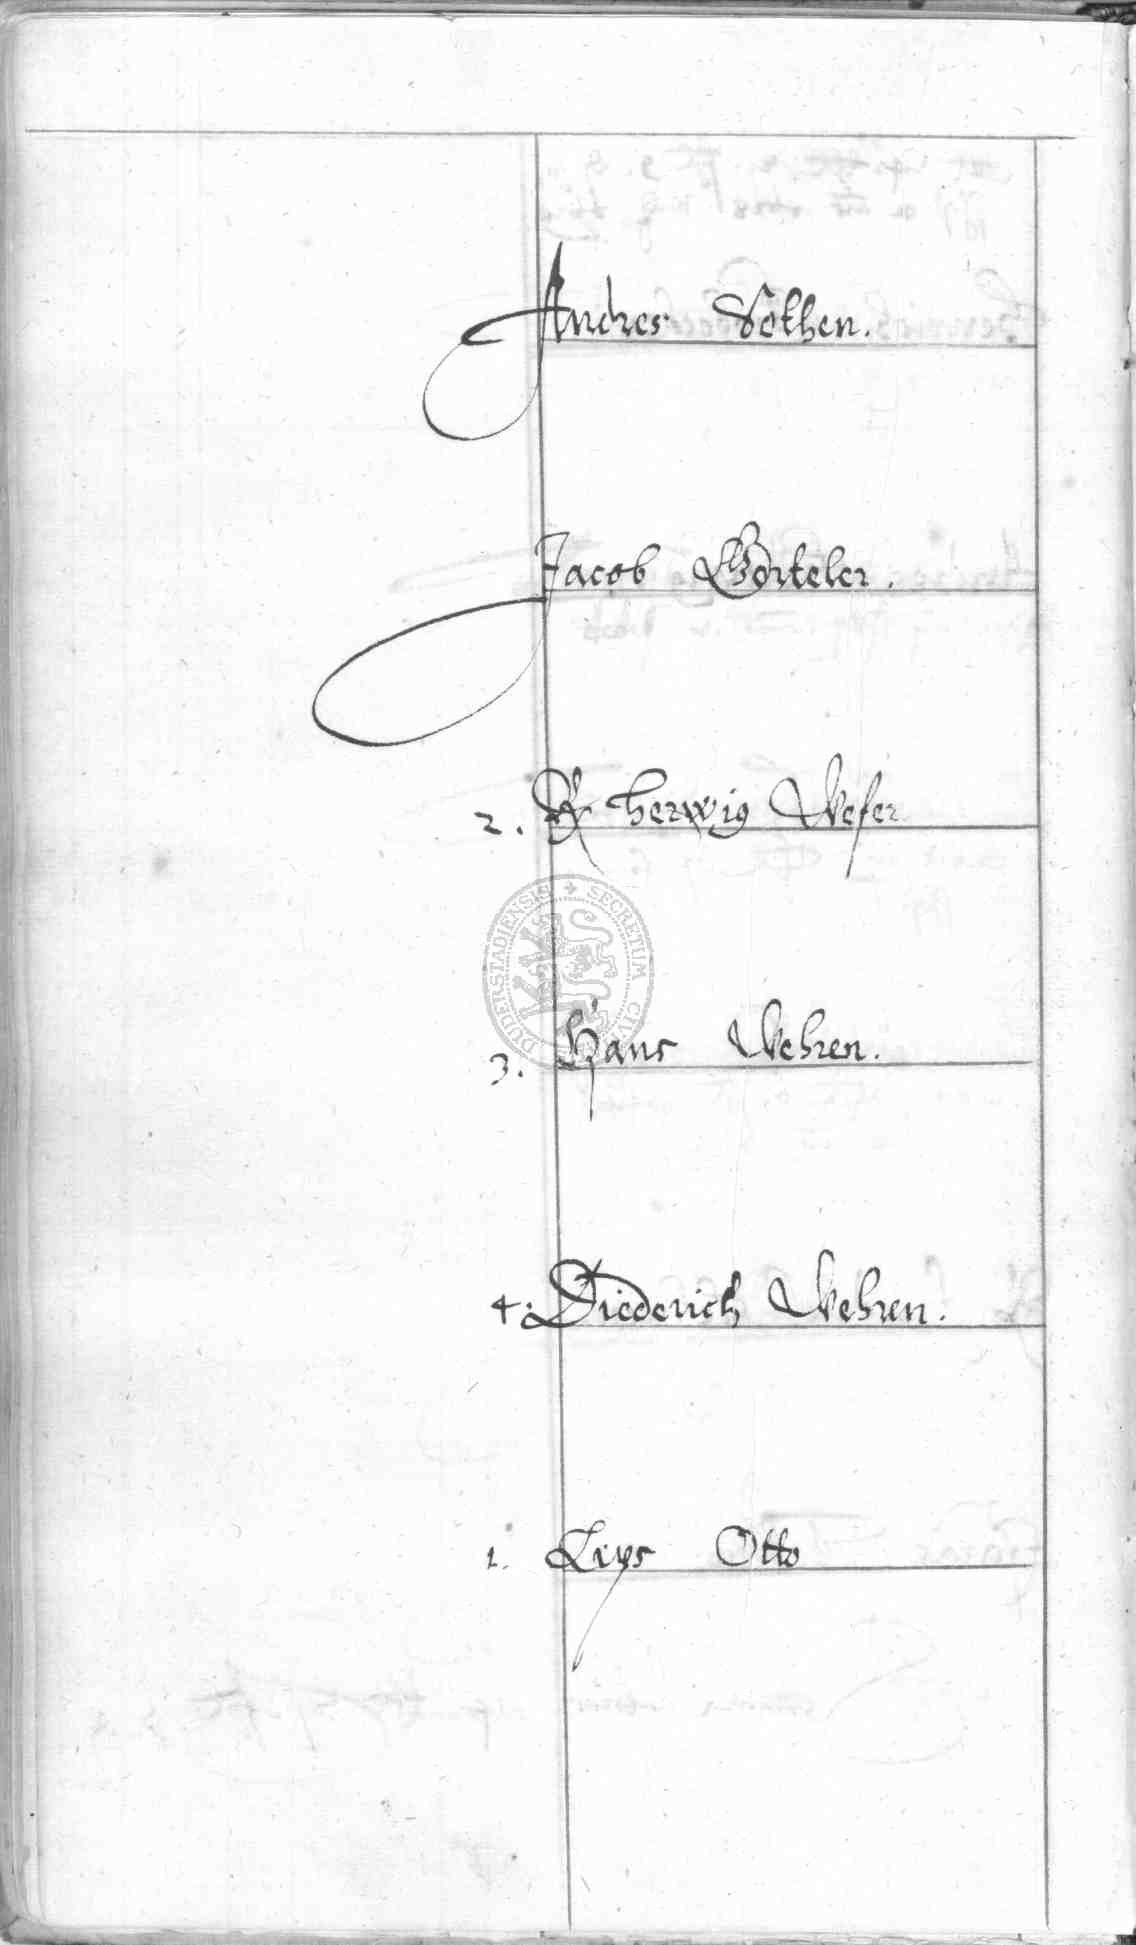 Andres Vothen.
Jacob Görteler.
2. H herwig Weser
3. Hans Wehren.
4. Diederich Wehren.
1. Otto
DUDERSTADIENSIS + SECRETUM CIVI